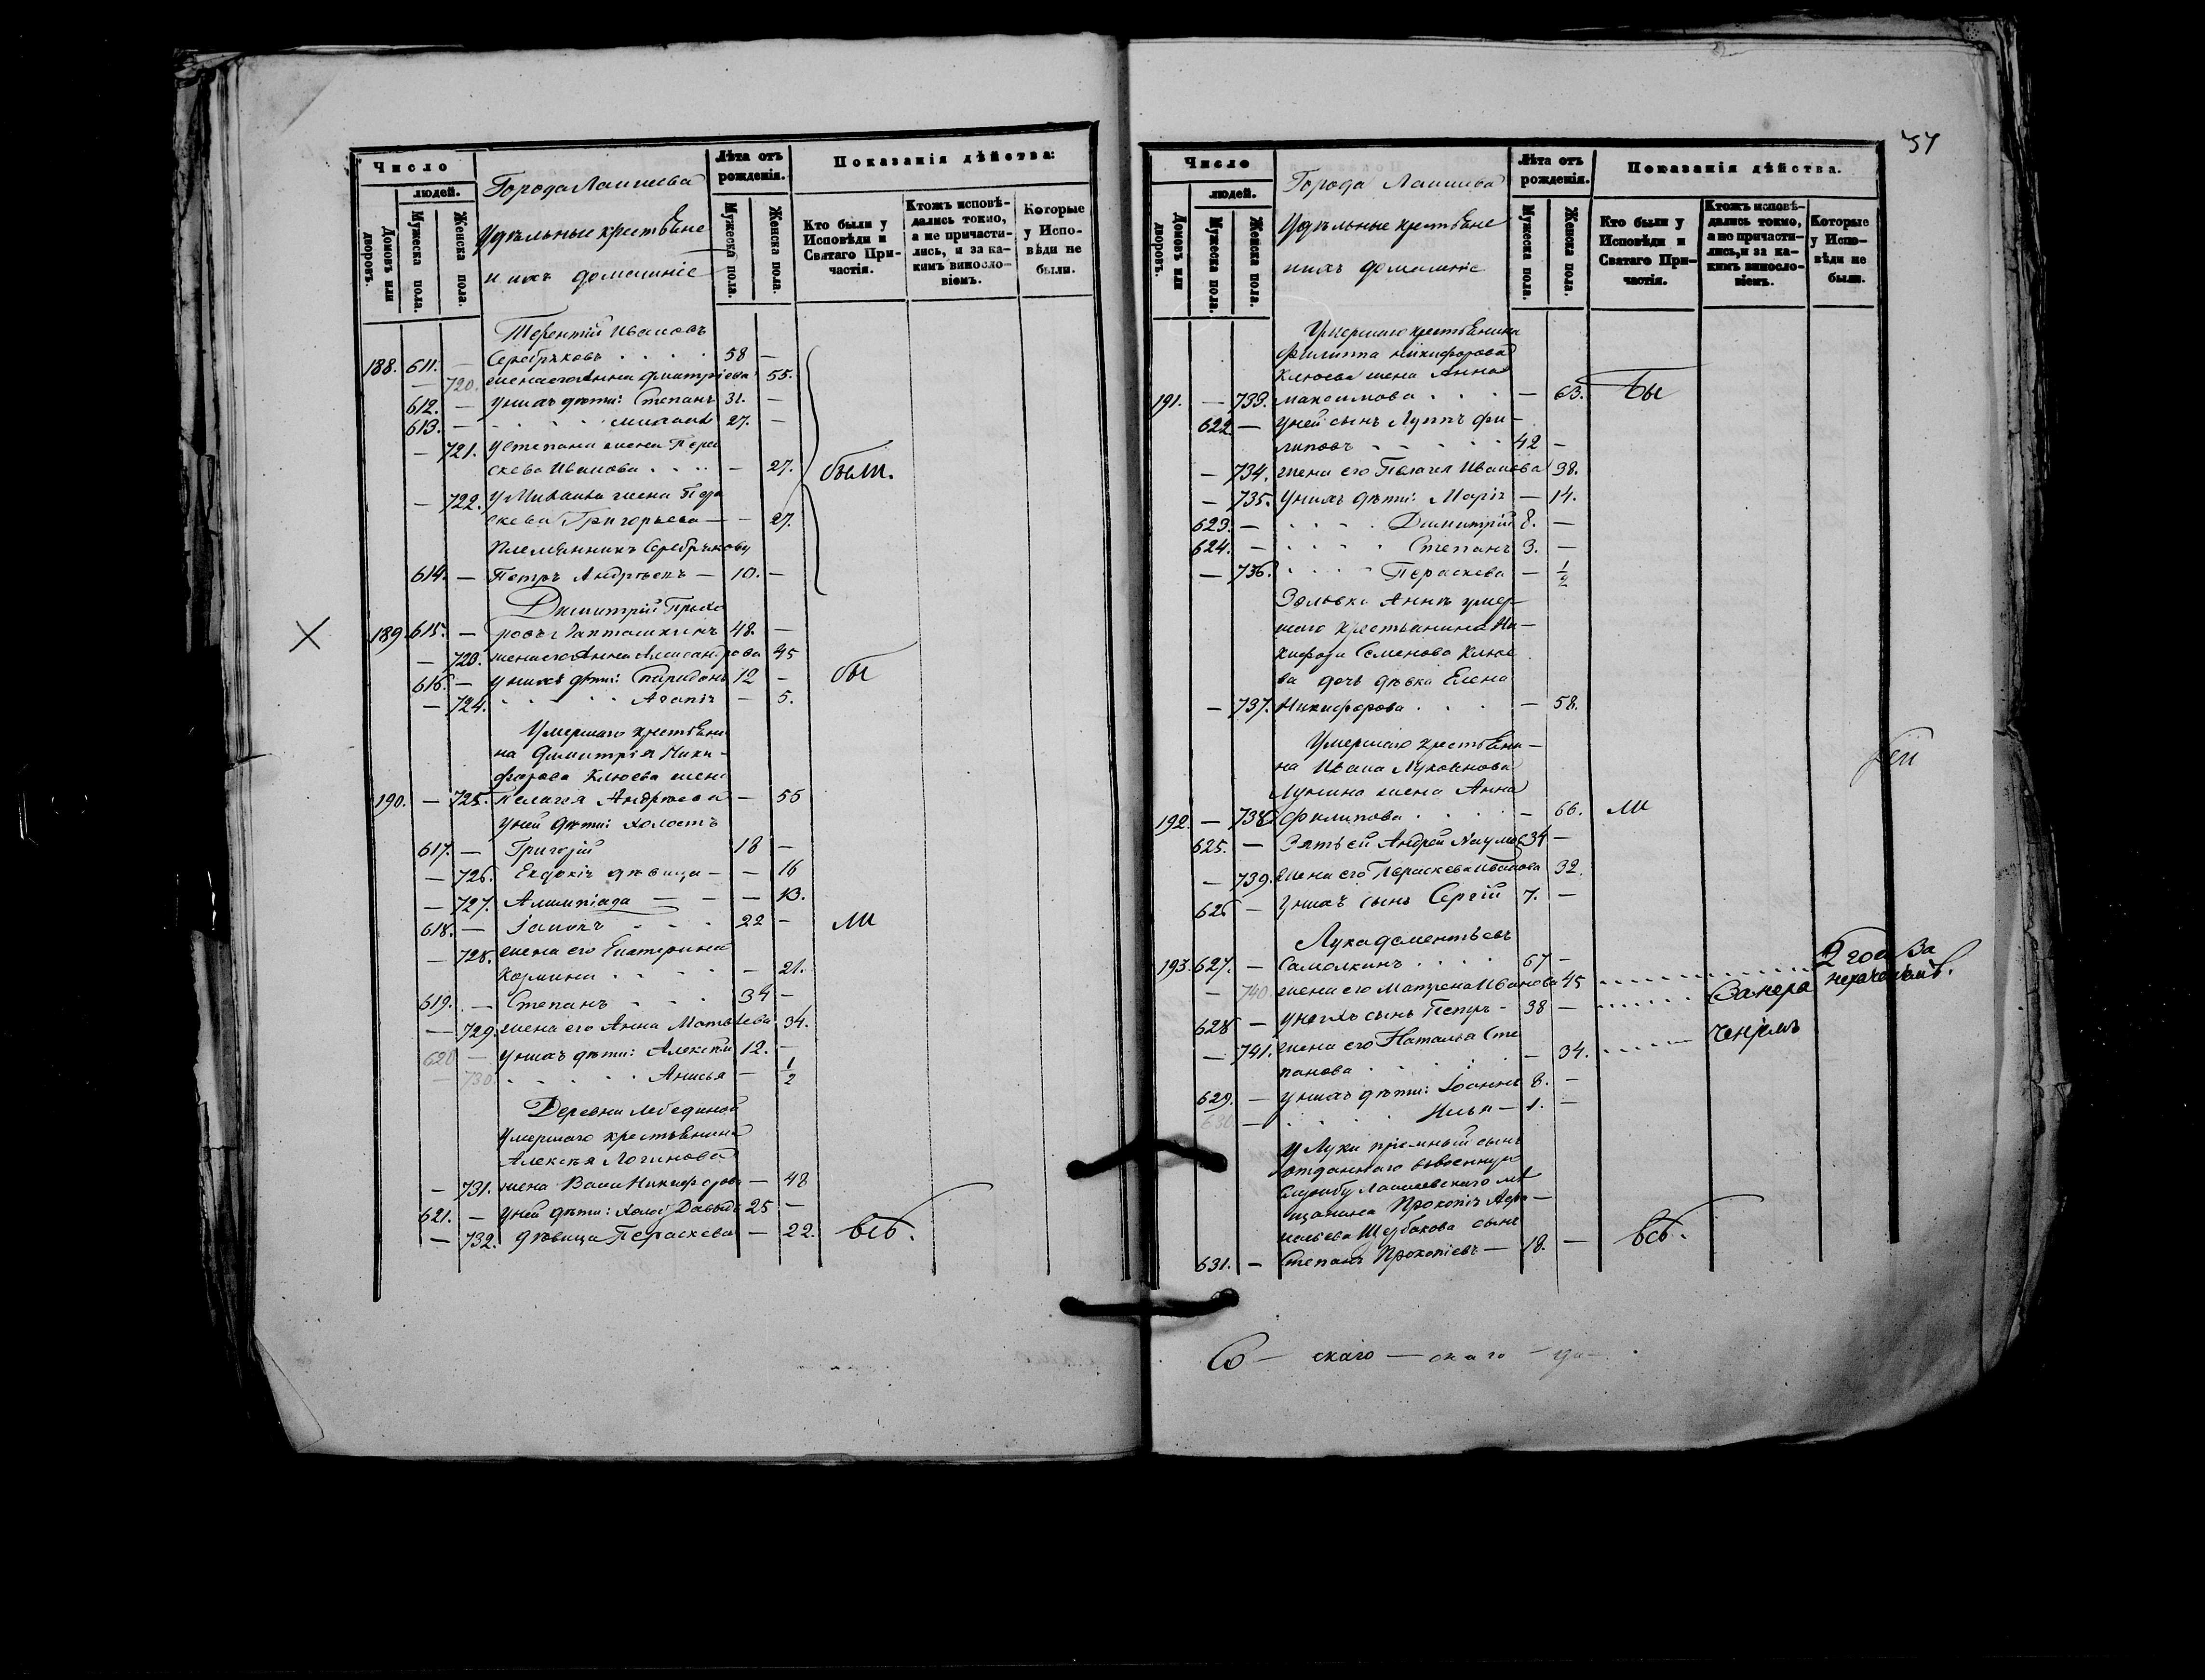 Число
людей.
Домовъ или дворовъ.
Мужеска пола.
Женска пола.
Города Лаишева
Удѣльные крестьяне
и ихъ домашніе
Лѣта отъ рожденія.
Мужеска пола.
Женска пола.
Показанія дѣйства:
Кто были у Исповѣди и Святаго При-частія.
Ктожъ исповѣ-дались токмо, а не причасти-лись, и за ка-кимъ винносло-віемъ.
Которые у Испо-вѣди не были.
Терентій Ивановъ
188. 611. — Серебряковъ . . . . 58 —
— 720. жена его Анна Дмитріева 55.
612. — у нихъ дѣти: Степанъ 31. —
613. — . . . . Михаилъ 27. —
— 721. у Степана жена Пера
скева Иванова . . . . — 27. были.
— 722. у Михаила жена Пера
скева Григорьева — — 27.
Племянникъ Серебрякову
614. — Петръ Андреевъ — 10. —
Димитрій Прохо
189. 615. — ровъ 48. —
— 723. жена его Анна Александрова 45
616. — у нихъ дѣти: Спиридонъ 12 — бы
— 724. . . . . . Агапія — 5.
Умершаго крестьяни
на Димитрія Ники-
форова Клюева жена
190. — 725. Пелагея Андреева — 55
у ней дѣти: холостъ
617. — Григорій 18 —
— 726. Евдокія дѣвица — — 16
— 727. Алимпіада — — — 13.
618. — . . . 22 — ли
— 728. жена его Екатерина
. . . . — 21.
619. — Степанъ . . . 34 —
— 729. жена его Анна Матвѣева 34.
620 — у нихъ дѣти: Алексѣй 12. —
— 730. . . . . . Анисья — 1/2
Деревни Лебединой
умершаго крестьянина
Алексѣя Логинова
— 731. жена Никифорова — 48
621. — у ней дѣти: холос. Давыдъ 25 —
— 732. дѣвица Пераскева — 22. всѣ.
57
Число
людей.
Домовъ или дворовъ.
Мужеска пола.
Женска пола.
Города Лаишева
Удѣльные крестьяне
и ихъ домашніе
Лѣта отъ рожденія.
Мужеска пола.
Женска пола.
Показанія дѣйства.
Кто были у Исповѣди и Святаго При-частія.
Ктожъ исповѣ-дались токмо, а не причасти-лись, и за ка-кимъ винносло-віемъ.
Которые у Испо-вѣди не были.
Умершаго крестьянина
Филиппа Никифорова
Клюева жена Анна
191. — 733. Максимова . . . — 63. бы
622 — у ней сынъ Луппъ Фи-
липовъ . . . . . 42 —
— 734. жена его Пелагея Иванова 38.
— 735. у нихъ дѣти: Марія — 14.
623. — . . . . Димитрій 8. —
624. — . . . . Степанъ 3. —
— 736. . . . . Пераскева — 1/2
Золовка Анны умер-
шаго крестьянина Ни-
кифора Семенова Клюе
ва дочь дѣвка Елена
— 737. Никифорова . . . — 58.
Умершаго крестьяни-
на Ивана Лукоянова
Лунина жена Анна
192. — 738. Филипова . . . . — 66. ли
625. — Зять ей Андрей Наумов 34 —
— 739. жена его Пераскева Иванова 32.
626 — у нихъ сынъ Сергій 7. —
Лука Дементьевъ
193. 627. — Самолкинъ . . . . 67 —
— 740. жена его Матрена Иванова 45
628 — у нихъ сынъ Петръ — 38 —
— 741. жена его Наталья Сте
панова . . . . — 34.
629. — у нихъ дѣти: Іоаннъ 8. —
630. — . . . Илья — 1. —
у Луки пріемный сынъ
отданнаго въ военную
службу Лаишевскаго мѣ
щанина Прокопія Афа-
насьева Щербакова сынъ
631. — Степанъ Прокопіевъ — 18. — всѣ.
2 года За